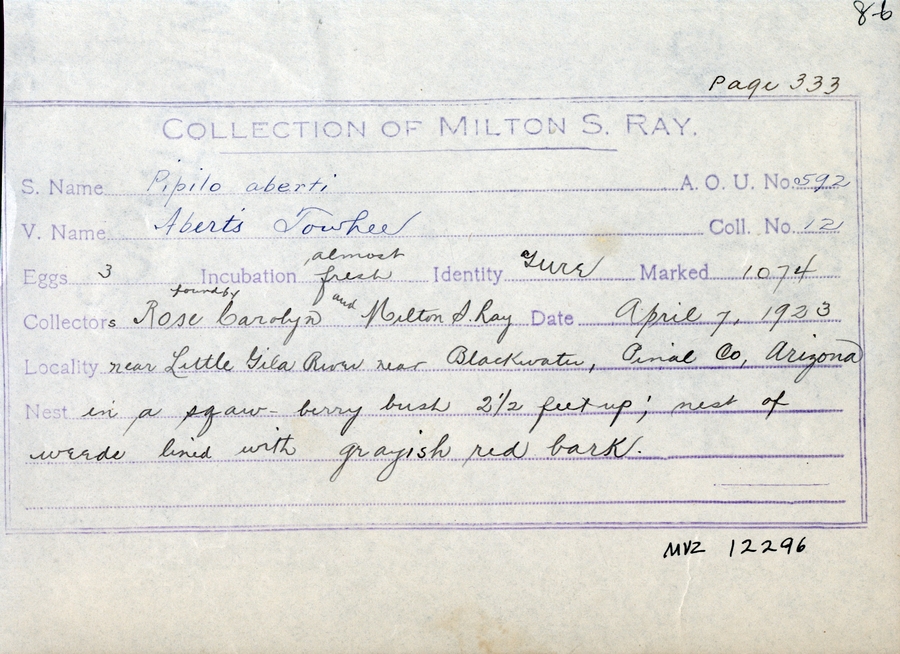 86
Page 333
COLLECTION OF MILTON S. RAY.
S. Name Pipilo aberti A. O. U. No. 592
V. Name Abert's Towhee Coll. No. 12
Eggs 3 Incubation almost fresh Identity Sure Marked 1074
Collectors found by Rose Carolyn and Milton S. Ray Date April 7, 1923
Locality near Little Gila River near Blackwater, Pinal Co, Arizona
Nest in a sqaw-berry bush 2 1/2 feet up; nest of
weeds lined with grayish red bark.
MVZ 12296